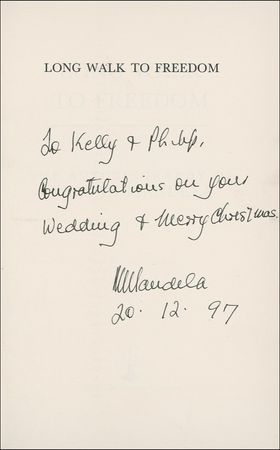 LONG WALK TO FREEDOM
To Kelly & Philip,
Congratulations on your
Wedding & Merry Christmas.
NMandela
20. 12. 97